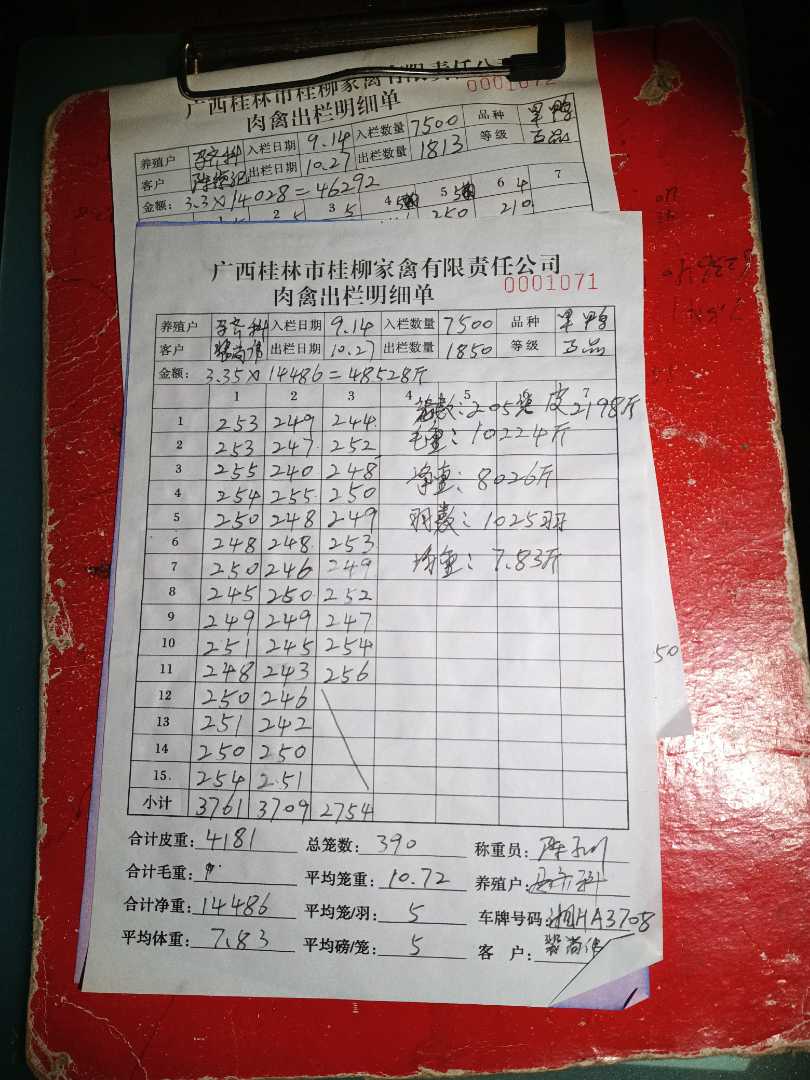 广西桂林市桂柳家禽有限责任公司
肉禽出栏明细单 0001072
养殖户 入栏日期 9.14 入栏数量 7500 品种 鸭
客户 出栏日期 10.27 出栏数量 1813 等级 正品
金额: 3.3×14028=46292
1 2 3 4 5 6 7
250 210
广西桂林市桂柳家禽有限责任公司
肉禽出栏明细单 0001071
养殖户 入栏日期 9.14 入栏数量 7500 品种 鸭
客户 出栏日期 10.27 出栏数量 1850 等级 正品
金额: 3.35×14486=48528斤
1 2 3 4 5 7
笼数:205 皮2198斤
1 253 249 244
毛重:10224斤
2 253 247 252
3 255 240 248 净重:8026斤
4 254 255 250
5 250 248 249 羽数:1025羽
6 248 248 253
7 250 246 249 均重:7.83斤
8 245 250 252
9 249 249 247
10 251 245 254
11 248 243 256
12 250 246
13 251 242
14 250 250
15. 254 251
小计 3761 3709 2754
合计皮重: 4181 总笼数: 390 称重员:
合计毛重: 平均笼重: 10.72 养殖户:
合计净重: 14486 平均笼/羽: 5 车牌号码: 湘HA3708
平均体重: 7.83 平均磅/笼: 5 客 户:
50